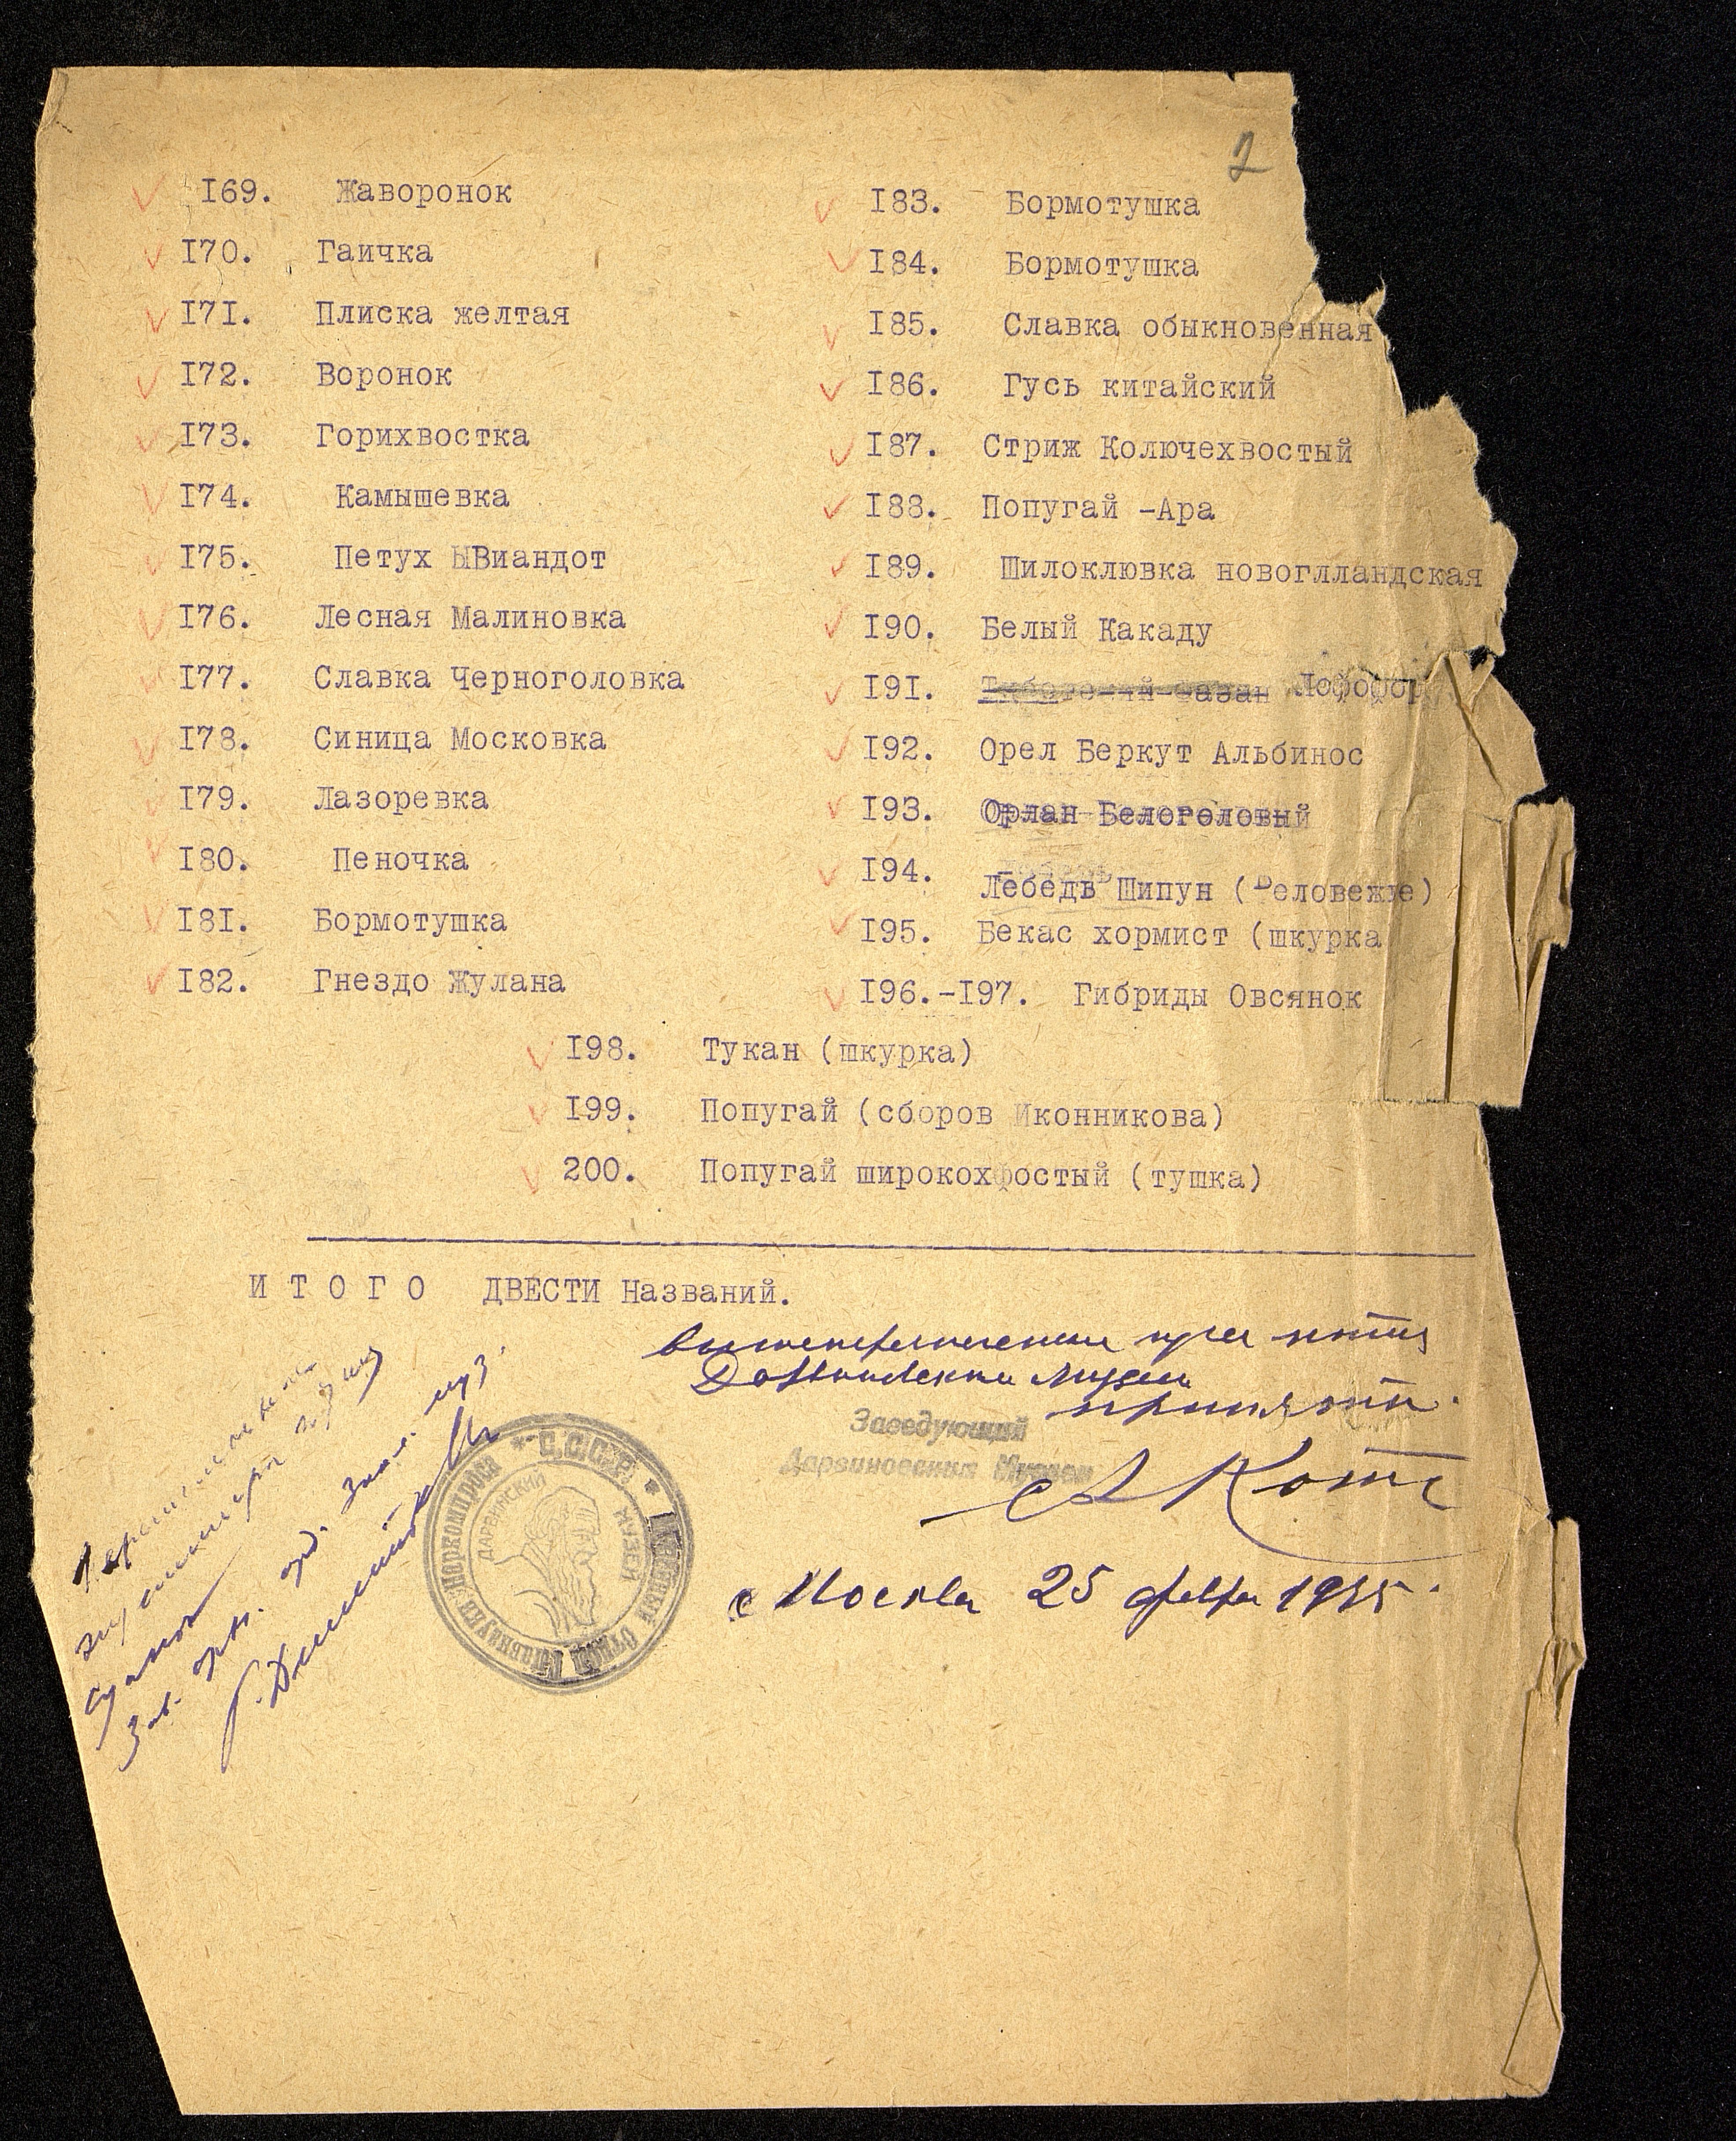 2
I69. Жаворонок
I70. Гаичка
I7I. Плиска желтая
I72. Воронок
I73. Горихвостка
I74. Камышевка
I75. Петух ЫВиандот
I76. Лесная Малиновка
I77. Славка Черноголовка
I78. Синица Московка
I79. Лазоревка
I80. Пеночка
I8I. Бормотушка
I82. Гнездо Жулана
I83. Бормотушка
I84. Бормотушка
I85. Славка обыкновенная
I86. Гусь китайский
I87. Стриж Колючехвостый
I88. Попугай -Ара
I89. Шилоклювка новоглландская
I90. Белый Какаду
I9I. фазан Лофофор
I92. Орел Беркут Альбинос
I93. Орлан Белоголовый
I94. Лебедь Шипун (Беловежье)
I95. Бекас хормист (шкурка
I96.-I97. Гибриды Овсянок
I98. Тукан (шкурка)
I99. Попугай (сборов Иконникова)
200. Попугай широкохфостый (тушка)
И Т О Г О ДВЕСТИ Названий.
вышеперечисленные птиц
Дарвиновским Музеем
приняты.
Заведующий
Дарвиновским Музеем
А Котс
Москва 25 февр 1935.
Зав. муз.
* С.С.С.Р. * Главнаука Наркомпроса
ДАРВИНСКИЙ МУЗЕЙ